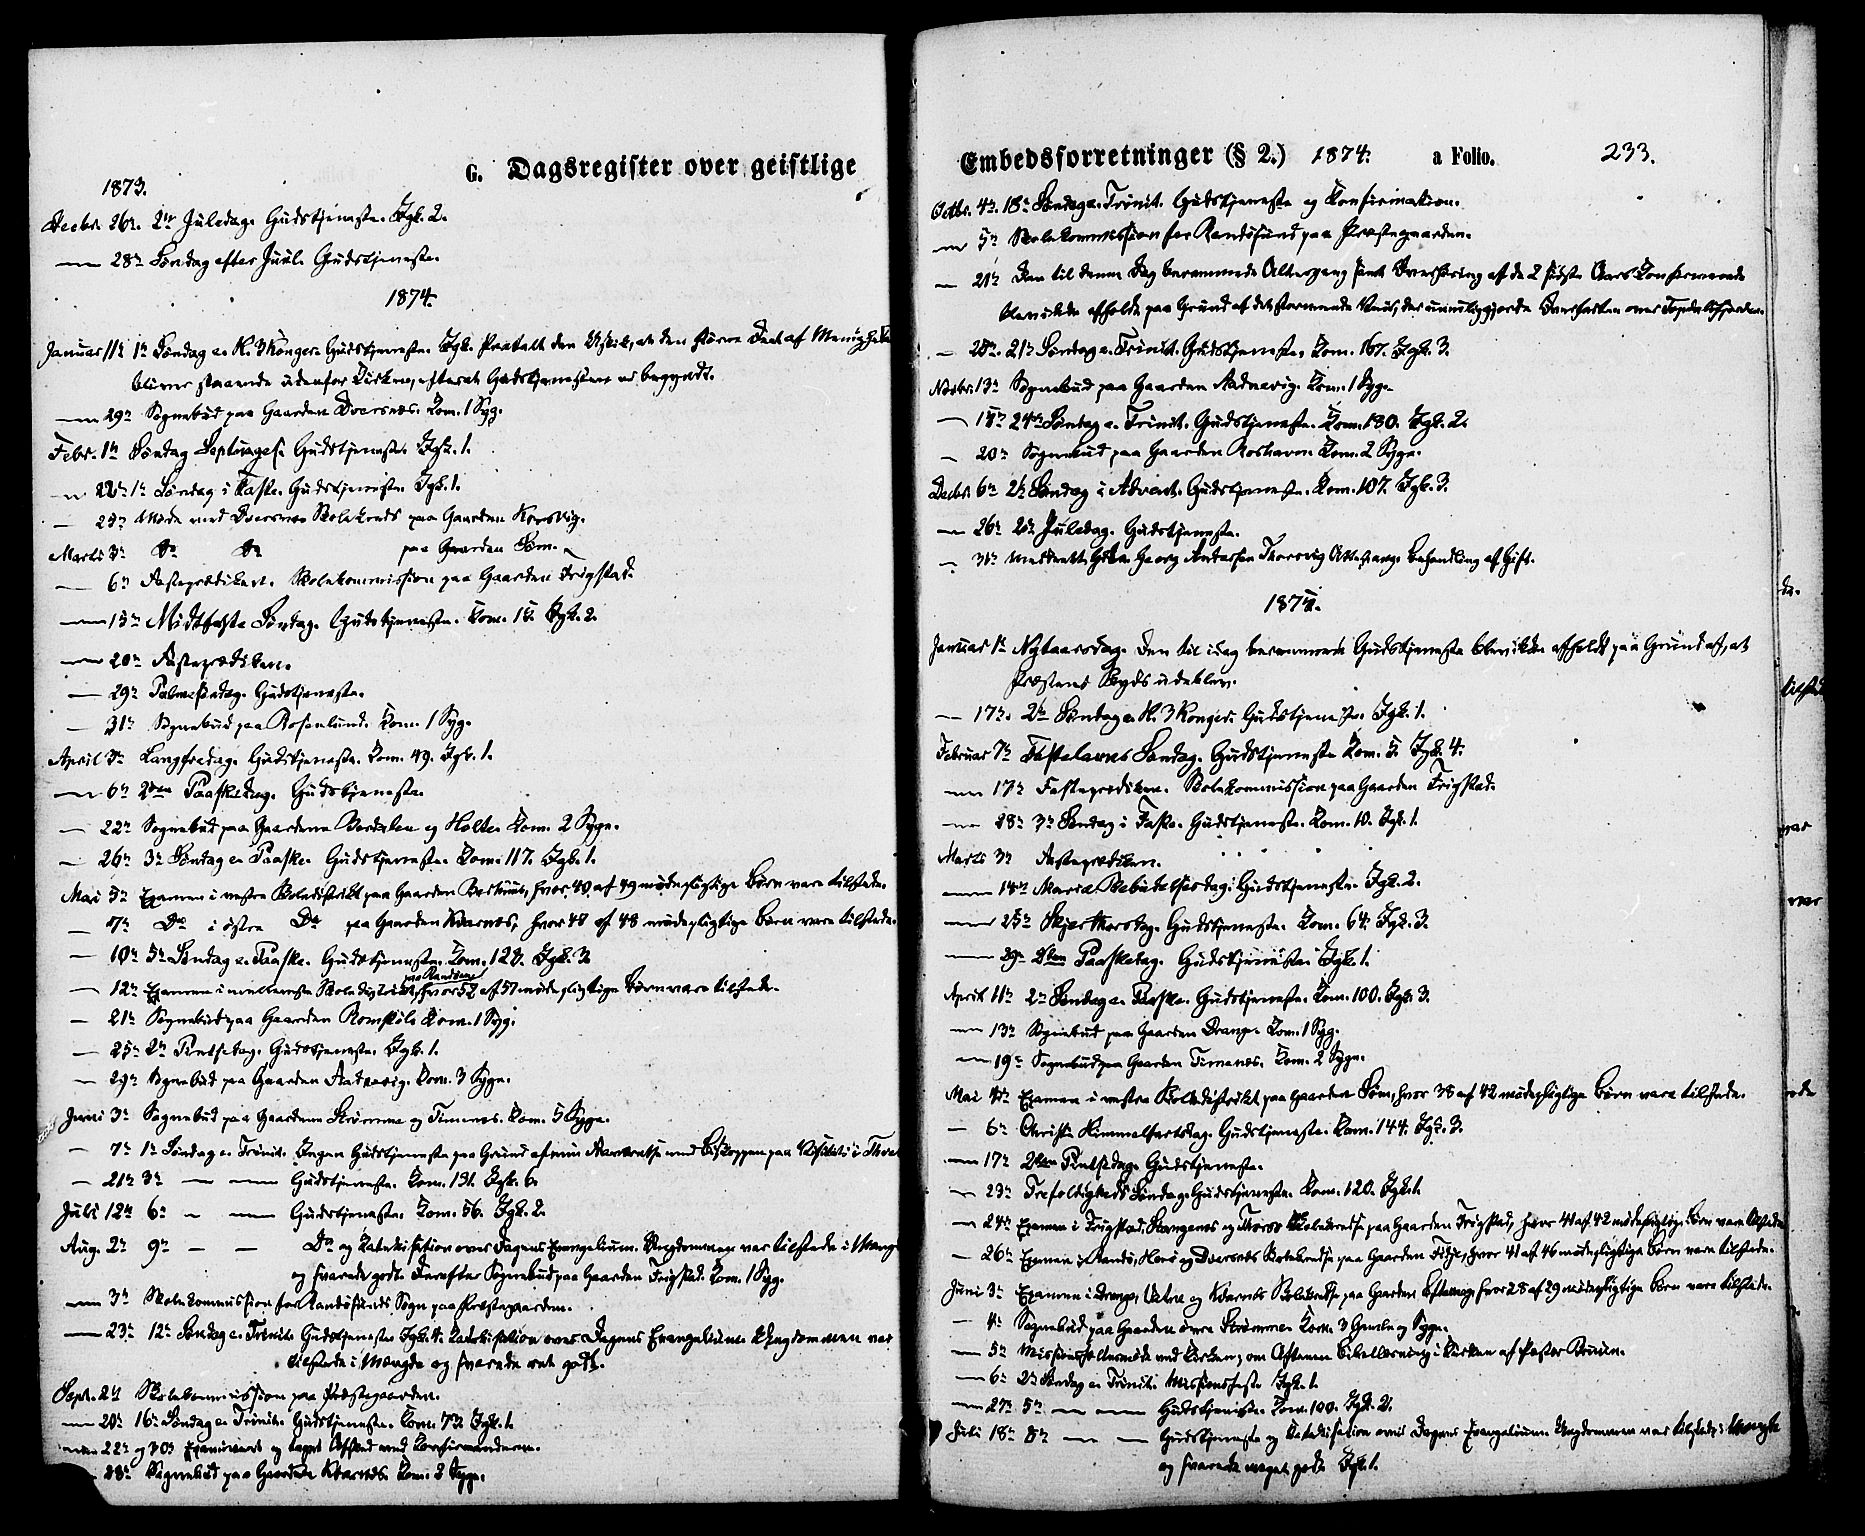 G. Dagsregister over geistlige
1873.
Decbr. 26n. 2n Juledag. Gudstjeneste. Igk. 2.
— 28n Søndag efter Juul. Gudstjeneste.
1874.
Januar 11n 1n Søndag e. H. 3 Konger. Gudstjeneste. Igk. den Uskik, at den større Deel af
bliver staaende udenfor Kirken, efterat Gudstjenesten er begyndt.
— 29n Sognebud paa Gaarden Dversnæs. Kom. 1 Syg.
Febr. 1n Søndag Septuages. Gudstjeneste. Igk. 1.
— 22n 1n Søndag i Faste. Gudstjeneste. Igk. 1.
— Møde med Dversnes Skolekreds paa Gaarden Korsvig.
Marts 3n Do Do paa Gaarden Søm.
— 6n Fasteprædiken. Skolekommission paa Gaarden Frigstad.
— 15n Midtfaste Søndag. Gudstjeneste. Kom. Igk. 2.
— 20n Fasteprædiken.
— 29n Palmesøndag. Gudstjeneste.
— 31n Sognebud paa Rosenlund. Kom. 1 Syg.
April 3n Langfredag. Gudstjeneste. Kom. 49. Igk. 1.
— 6n 2den Paaskedag. Gudstjeneste.
— 22n Sognebud paa Gaardene og Holte. Kom. 2 Syge.
— 26n 3n Søndag e. Paaske. Gudstjeneste. Kom. 117. Igk. 1.
Mai 5n Examen i vestre Skoledistrikt paa Gaarden hvor 40 af 49 mødepligtige Børn vare tilstede.
— 7n Do i østre Do paa Gaarden Kvarnes, hvor 47 af 48 mødepligtige Børn vare tilstede.
— 10n 5n Søndag e. Paaske. Gudstjeneste. Kom. 123. Igk. 3.
— 12n Examen i mellemste Skoledistrikt paa Randøen, hvor 52 af 57 mødepligtige Børn vare tilstede.
— 21n Sognebud paa Gaarden Kom. 1 Syg.
— 25n 2n Pintsedag. Gudstjeneste. Igk. 1.
— 29n Sognebud paa Gaarden Aadnevig. Kom. 3 Syge.
Juni 3n Sognebud paa Gaardene Strømme og Timenes. Kom. 5 Syge.
— 7n 1n Søndag e. Trinit. Ingen Gudstjeneste paa Grund af min Nærværelse med Biskoppen paa Visitats i
— 21n 3n — — Gudstjeneste. Kom. 131. Igk. 6.
Juli 12n 6n — — Gudstjeneste. Kom. 56. Igk. 2.
Aug. 2n 9n — — Do og Katekisation over Dagens Evangelium. Ungdommen var tilstede i Mængde
og svarede godt. Derefter Sognebud paa Gaarden Frigstad. Kom. 1 Syg.
— 3n Skolekommission for Randøsunds Sogn paa Præstegaarden.
— 23n 12n Søndag e. Trinit. Gudstjeneste. Igk. 4. Katekisation over Dagens Evangelium. Ungdommen var
tilstede i Mængde og svarede ret godt.
Sept. Skolekommission paa Præstegaarden.
— 20n 16n Søndag e. Trinit. Gudstjeneste. Kom. 73. Igk. 1.
— 22n og 30n Examineret og taget Afsked med Konfirmanderne.
— 28n Sognebud paa Gaarden Kvarnes. Kom. 2 Syge.
Embedsforretninger (§ 2.) 1874. a Folio. 233.
Octbr. 4n. 18n Søndag e. Trinit. Gudstjeneste og Konfirmation.
— 5n Skolekommission for Randøsund paa Præstegaarden.
— 21n Den til denne Dag berammede Altergang samt Overhøring af de 2 sidste Aars Konfirmerede
blev ikke afholdt paa Grund af det stormende Veir, der umuliggjorde Overfarten over Topdalsfjorden.
— 25n. 21n Søndag e. Trinit. Gudstjeneste. Kom. 167. Igk. 3.
Novbr. 13n Sognebud paa Gaarden Aadnevig. Kom. 1 Syg.
— 15n 24n Søndag e. Trinit. Gudstjeneste. Kom. 130. Igk. 2.
— 20n Sognebud paa Gaarden Kom. 2 Syge.
Decbr. 6n 2n Søndag i Advent. Gudstjeneste. Kom. 107. Igk. 3.
— 26n 2n Juledag. Gudstjeneste.
— 31n Meddeelt Georg Andersen Attest ang. Behandling af Gift.
1875.
Januar 1n Nytaarsdag. Den til idag berammede Gudstjeneste blev ikke afholdt paa Grund af, at
Præstens Skyds udeblev.
— 17n. 2n Søndag e. H. 3 Konger. Gudstjeneste. Igk. 1.
Februar 7n Fastelavns Søndag. Gudstjeneste. Kom. 5. Igk. 4.
— 17n Fasteprædiken. Skolekommission paa Gaarden Frigstad.
— 28n 3n Søndag i Faste. Gudstjeneste. Kom. 10. Igk. 1.
Marts 3n Fasteprædiken.
— 14n Mariæ Bebudelsesdag. Gudstjeneste. Igk. 2.
— 25n Skjærthorsdag. Gudstjeneste. Kom. 64. Igk. 3.
— 29n 2den Paaskedag. Gudstjeneste. Igk. 1.
April 11n 2n Søndag e. Paaske. Gudstjeneste. Kom. 100. Igk. 3.
— 13n Sognebud paa Gaarden Drange. Kom. 1 Syg.
— 19n Sognebud paa Gaarden Timenes. Kom. 2 Syge.
Mai 4n Examen i vestre Skoledistrikt paa Gaarden Søm, hvor 38 af 42 mødepligtige Børn vare tilstede.
— 6n Christi Himmelfartsdag. Gudstjeneste. Kom. 144. Igk. 3.
— 17n 2den Pintsedag. Gudstjeneste.
— 23n Trefoldigheds Søndag. Gudstjeneste. Kom. 120. Igk. 1.
— 24n Examen i Frigstad, Stangenes og Skolekredse paa Gaarden Frigstad, hvor 41 af 42 mødepligtige Børn vare tilstede.
— 26n Examen i Randø, Herø og Dversnes Skolekredse paa Gaarden hvor 41 af 46 mødepligtige Børn vare tilstede.
Juni 3n Examen i Drange, og Kvarnes Skolekredse paa Gaarden hvor 28 af 29 mødepligtige Børn vare tilstede.
— 4n Sognebud paa Gaarden øvre Strømme. Kom. 3 Gamle og Syge.
— 5n ved Kirken, om Aftenen Bibellæsning i Kirken af Pastor
— 6n 2n Søndag e. Trinit. Missionsfest. Igk. 1.
— 27n 5n — — Gudstjeneste. Kom. 100. Igk. 2.
Juli 18n 8n — — Gudstjeneste og Katekisation over Dagens Evangelium. Ungdommen var tilstede i Mængde
og svarede meget godt. Igk. 1.